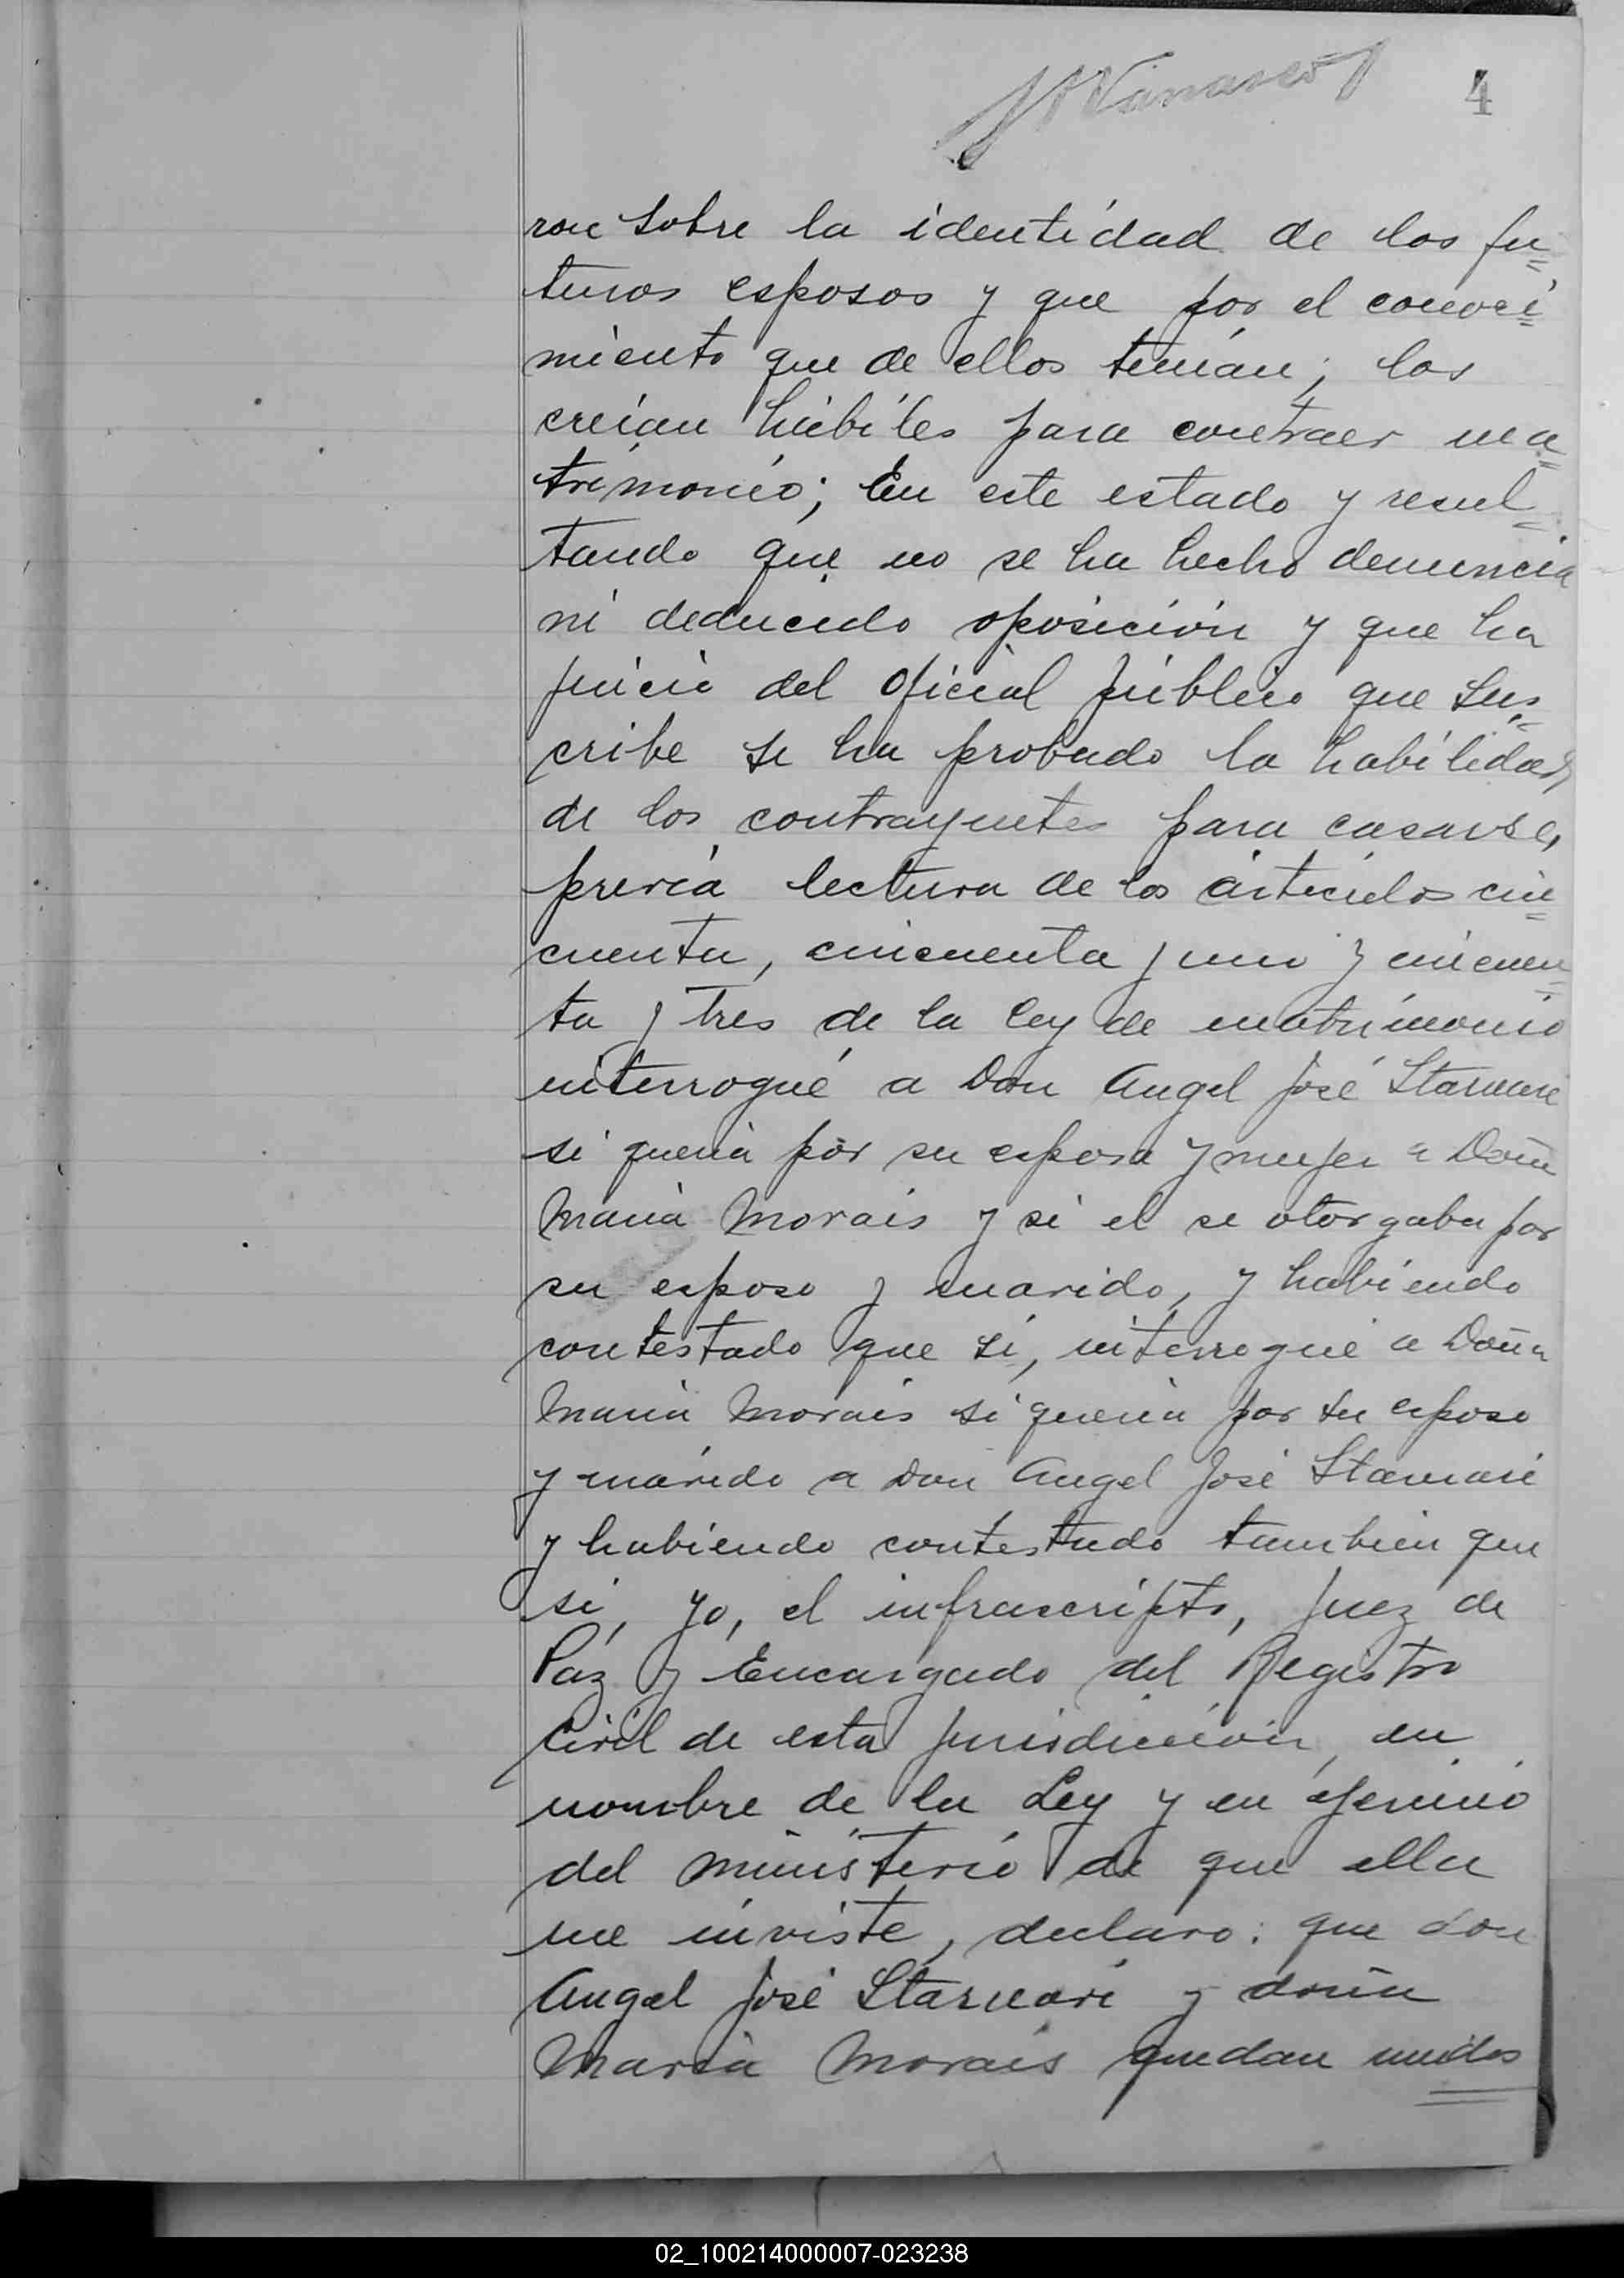 4
ron sobre la identidad de los fu=
turos esposos y que por el conoci=
miento que de ellos tenían; los
creían hábiles para contraer ma=
trimonio; En este estado y resul=
tando que no se ha hecho denuncia
ni deducido oposición y que ha
juicio del oficial público que sus=
cribe se ha probado la habilidad
de los contrayentes para casarse,
previa lectura de los artículos cin=
cuenta, cincuenta y uno y cincuen=
ta y tres de la ley de matrimonio
interrogué a Don Angel José
si quería por su esposa y mujer a Doña
María Morais y si el se otorgaba por
su esposo y marido, y habiendo
contestado que si, interrogué a Doña
María Morais si quería por su esposo
y marido a Don Angel José
y habiendo contestado tambien que
si, yo, el infrascripto, Juez de
Paz y Encargado del Registro
Civil de esta jurisdicción, en
nombre de la Ley y en ejercicio
del ministerio de que ella
me inviste, declaro: que don
Angel José Starnari y doña
María Morais quedan unidos
02_100214000007-023238